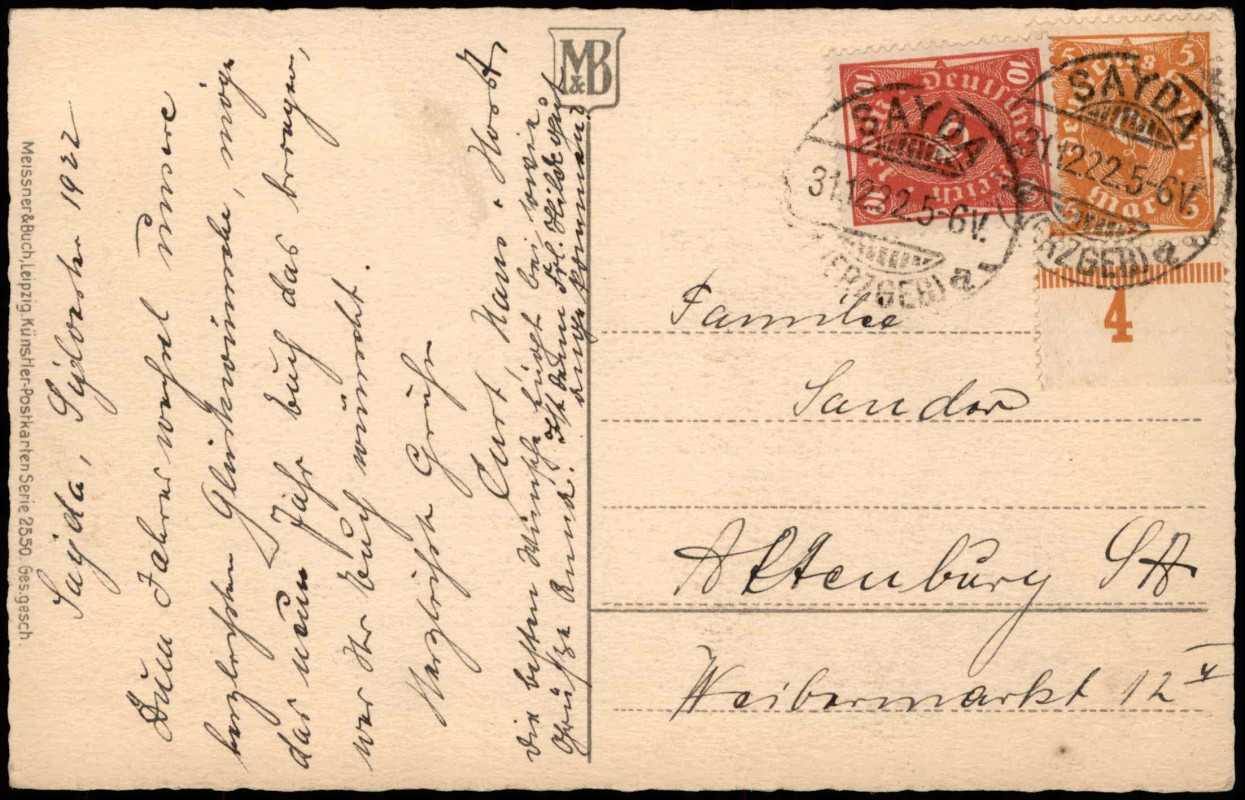 Meissner & Buch, Leipzig. Künstler-Postkarten Serie 2550. Ges. gesch.
Sayda, Sylvester 1922
Zum Jahreswechsel unsere
herzlichsten Glückwünsche, möge
das neue Jahr Euch das bringen,
was Ihr Euch wünscht.
Herzlichste Grüße
Curt, Horst.
Die besten Wünsche und
Grüße Ist denn Frl. Hildegard
angekommen?
M&B
10 10
Deutsches Reich
10
5 5
Deutsches Reich
Mark 5
4
SAYDA
31.12.22.5-6V.
(ERZGEB) a
SAYDA
31.12.22.5-6V.
(ERZGEB) a
Familie
Sander
Altenburg SA
Weibermarkt 12 I